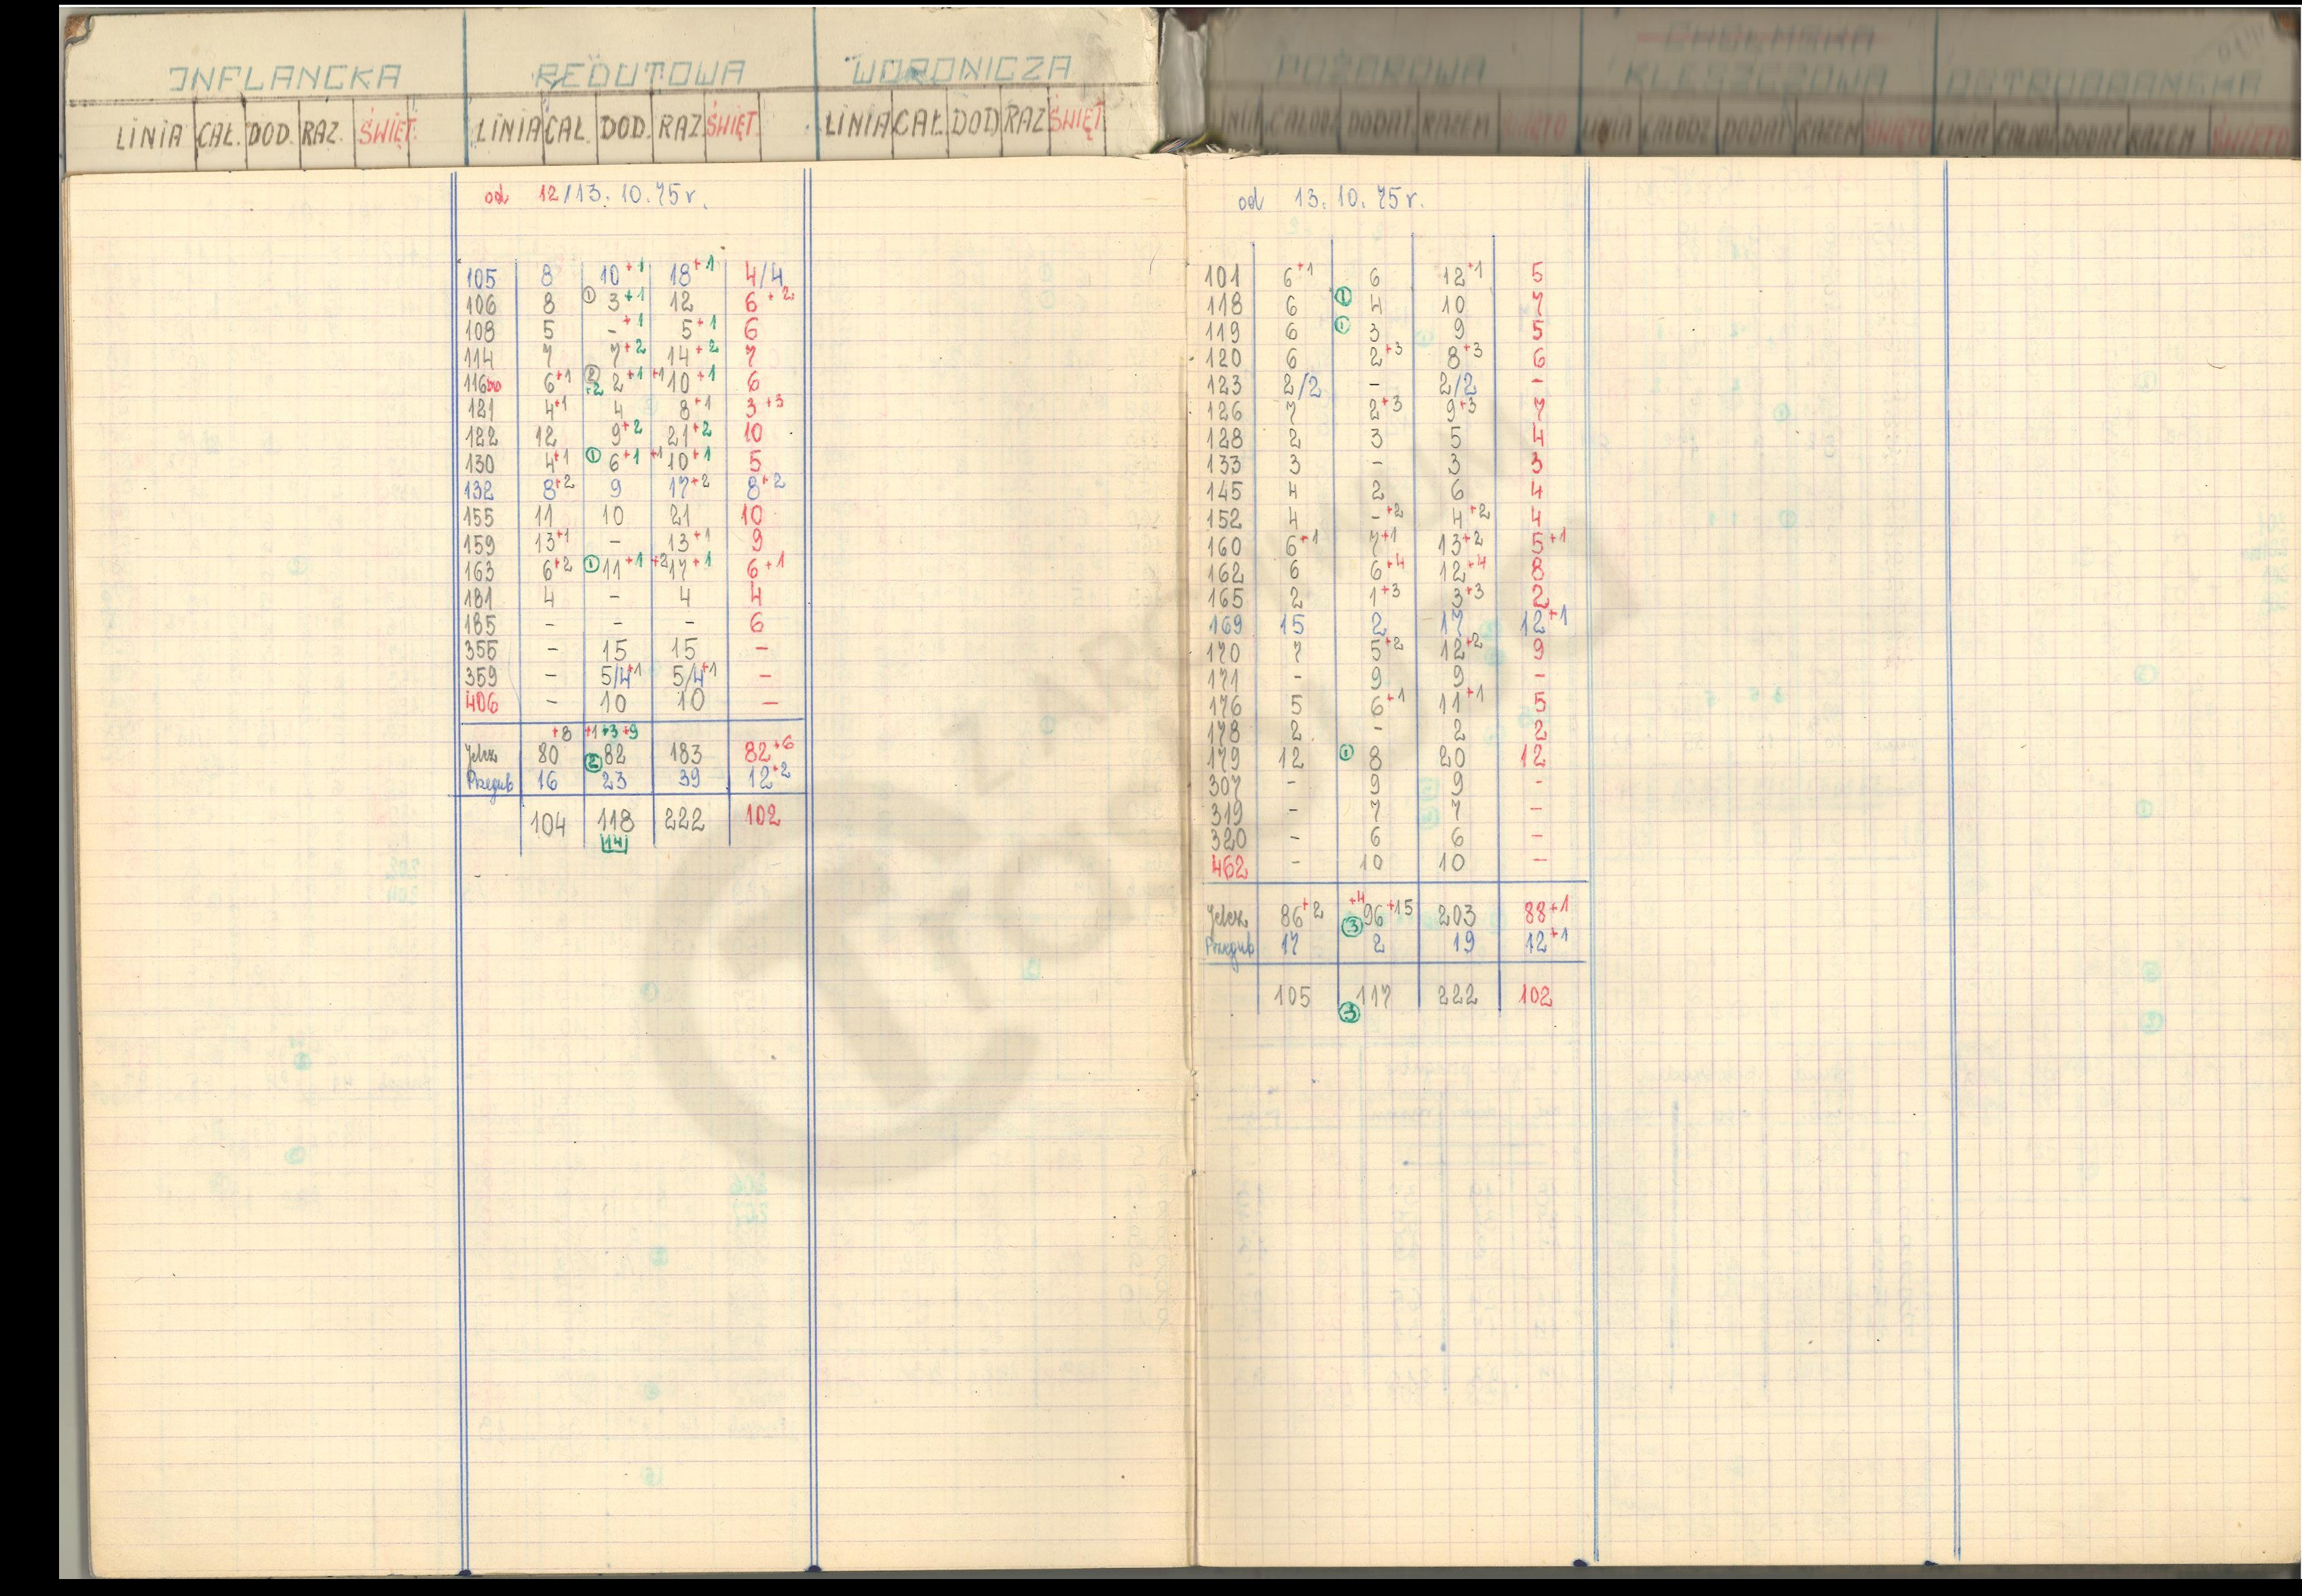 INFLANCKA REDUTOWA WORONICZA
LINIA CAŁ. DOD. RAZ. ŚWIĘT. LINIA CAŁ. DOD. RAZ ŚWIĘT. LINIA CAŁ DOD RAZ ŚWIĘT
od 12/13. 10. 75 r.
105 8 10+1 18+1 4/4
106 8 ① 3+1 12 6+2
108 5 -+1 5+1 6
114 7 7+2 14+2 7
116 6+1 ② +2 2+1 +1 10+1 6
121 4+1 4 8+1 3+3
122 12 9+2 21+2 10
130 4+1 ① 6+1 +1 10+1 5
132 8+2 9 17+2 8+2
155 11 10 21 10
159 13+1 - 13+1 9
163 6+2 ① 11+1 +2 17+1 6+1
181 4 - 4 4
185 - - - 6
355 - 15 15 -
359 - 5/4+1 5/4+1 -
406 - 10 10 -
+8 +1+3+9
Jelcz 80 ② 82 183 82+6
Przegub 16 23 39 12+2
104 118 222 102
14
POŻAROWA CHEŁMSKA KLESZCZOWA OSTROBRAMSKA
LINIA CAŁODZ DODAT RAZEM ŚWIĘTO LINIA CAŁODZ DODAT RAZEM ŚWIĘTO LINIA CAŁODZ DODAT RAZEM ŚWIĘTO
od 13. 10. 75 r.
101 6+1 6 12+1 5
118 6 ① 4 10 7
119 6 ① 3 9 5
120 6 2+3 8+3 6
123 2/2 - 2/2 -
126 7 2+3 9+3 7
128 2 3 5 4
133 3 - 3 3
145 4 2 6 4
152 4 -+2 4+2 4
160 6+1 7+1 13+2 5+1
162 6 6+4 12+4 8
165 2 1+3 3+3 2
169 15 2 17 12+1
170 7 5+2 12+2 9
171 - 9 9 -
176 5 6+1 11+1 5
178 2 - 2 2
179 12 ① 8 20 12
307 - 9 9 -
319 - 7 7 -
320 - 6 6 -
462 - 10 10 -
Jelcz 86+2 +4 ③ 96+15 203 88+1
Przegub 17 2 19 12+1
105 117 222 102
③